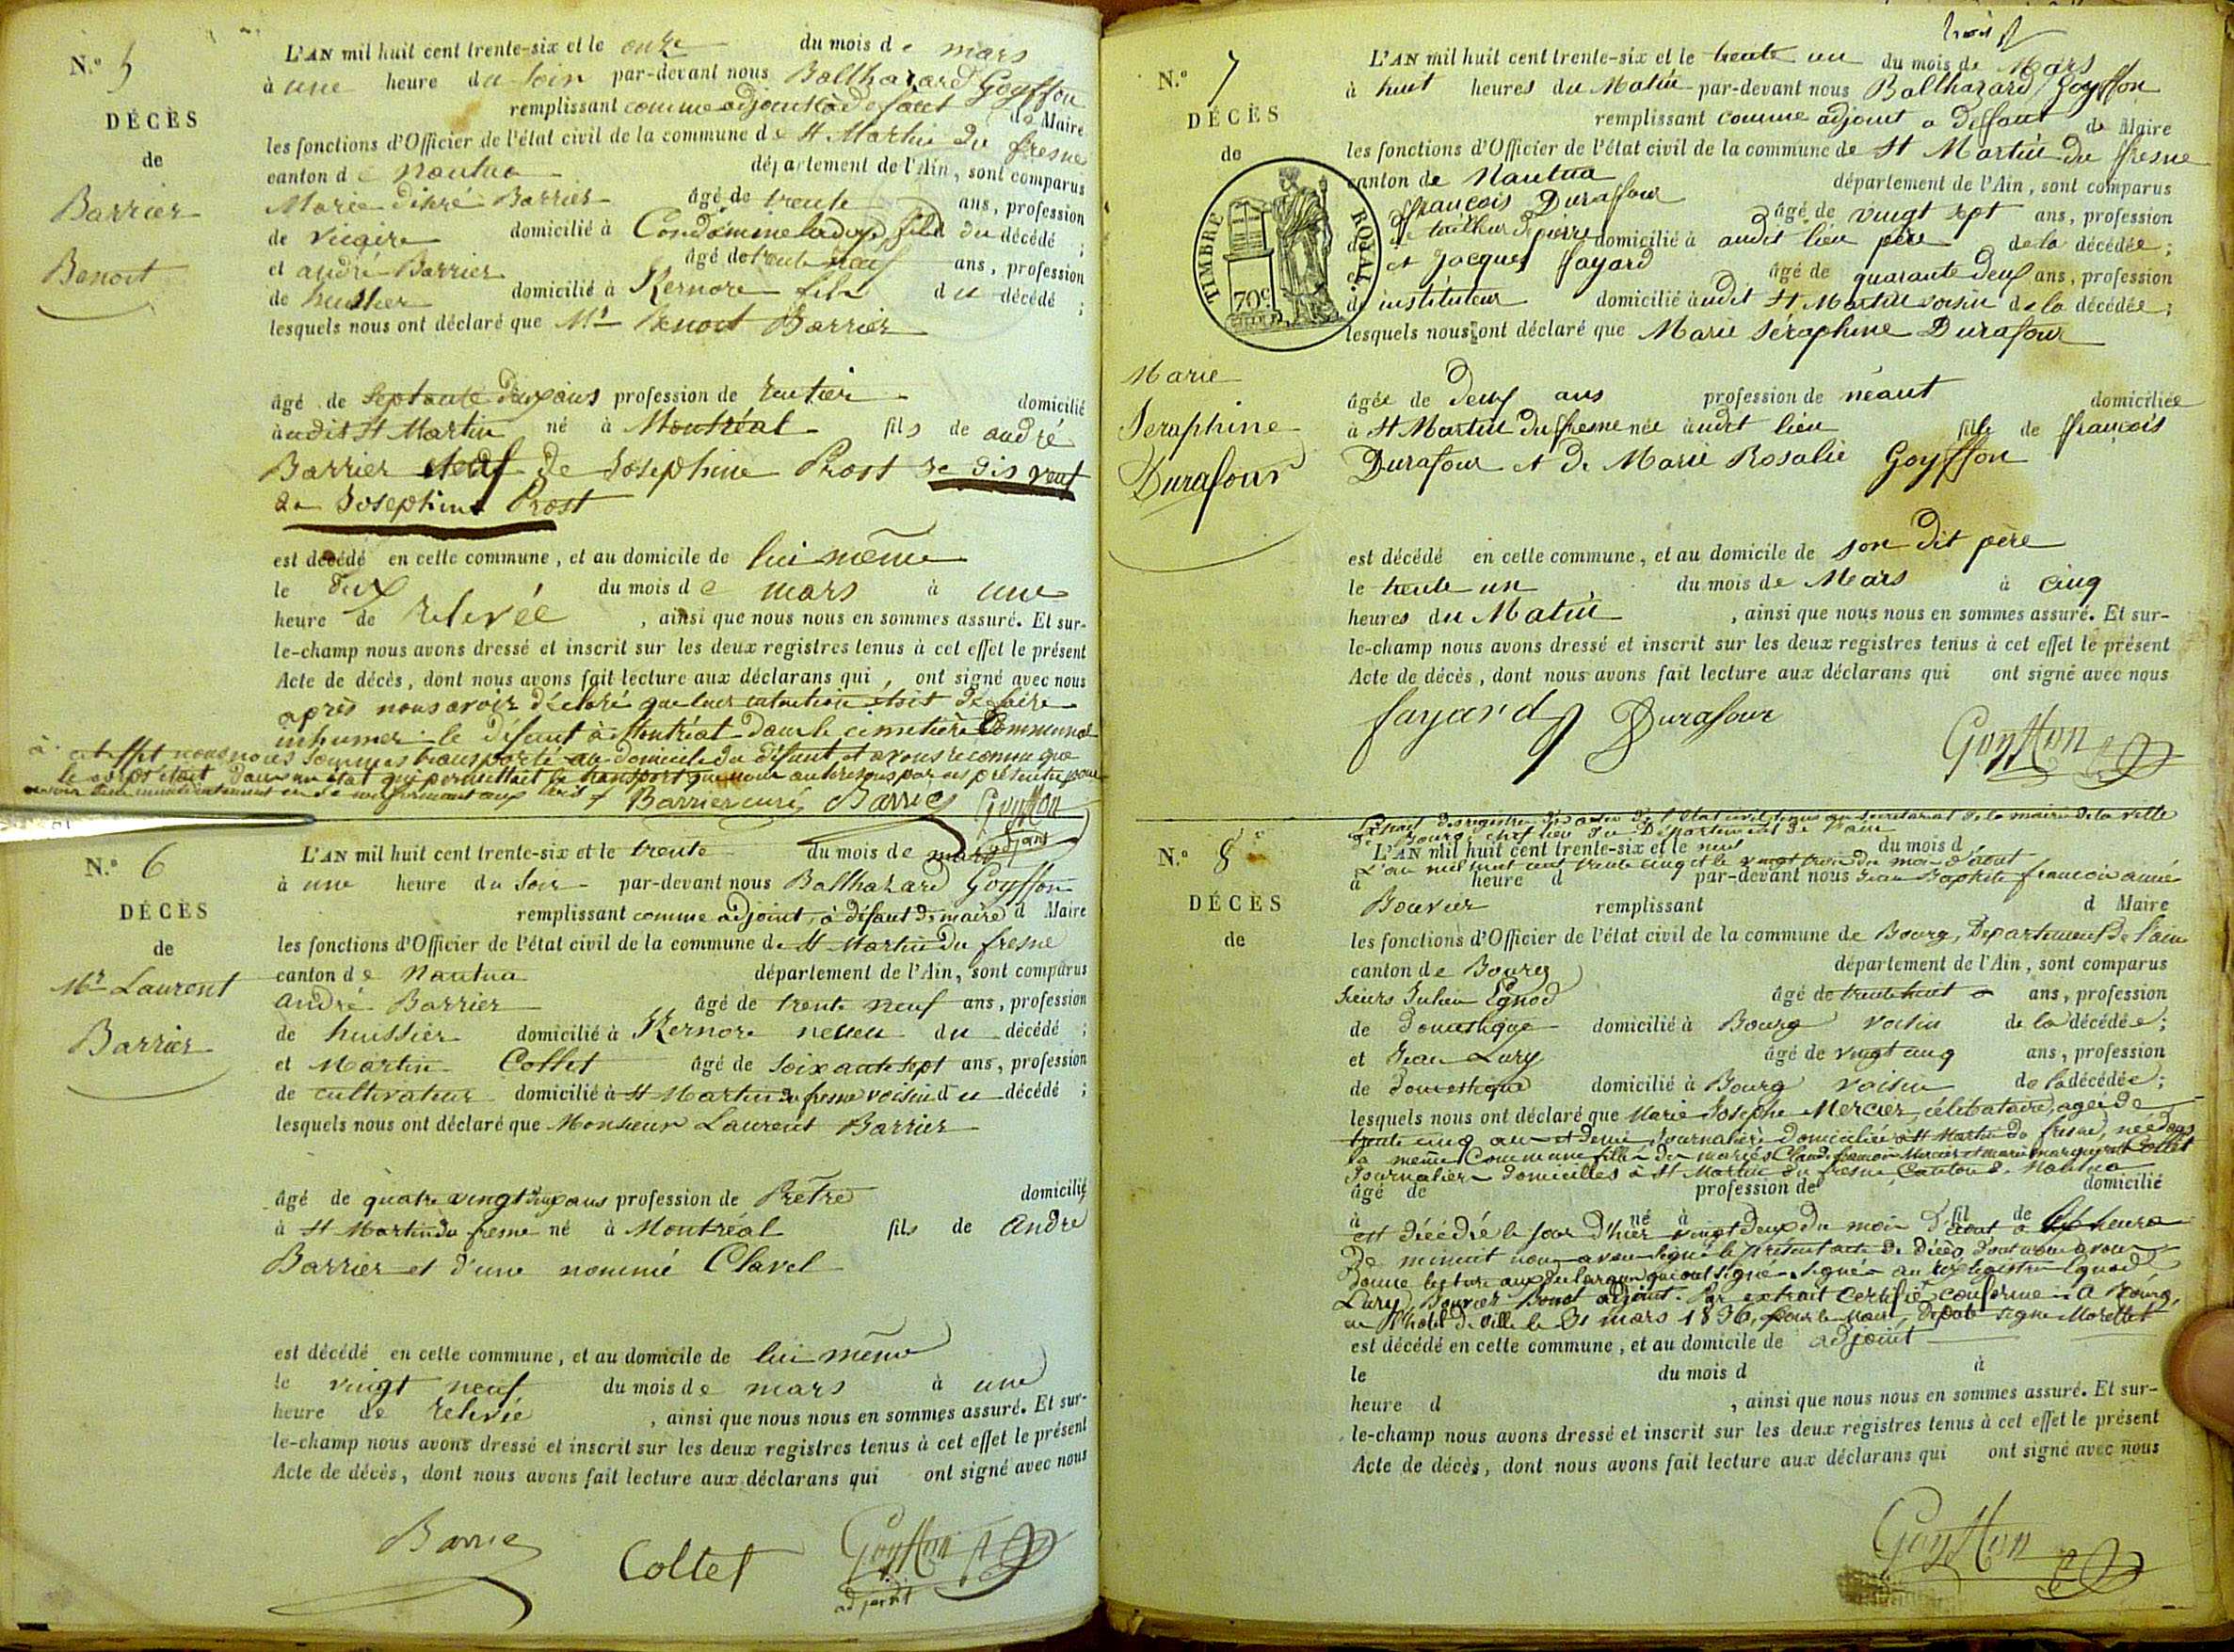 N.o 5
DÉCÈS
de
Barrier
Benoit
L'AN mil huit cent trente-six et le onze du mois de mars
à une heure du soir par-devant nous Balthazard Goyffon
remplissant comme adjoint à défaut de Maire
les fonctions d'Officier de l'état civil de la commune de St Martin du fresne
canton de Nantua département de l'Ain, sont comparus
Marie désiré Barrier âgé de trente ans, profession
de vicaire domicilié à Condamine fils du décédé ;
et andré Barrier âgé de trente neuf ans, profession
de huissier domicilié à Kernore fils du décédé ;
lesquels nous ont déclaré que Mr Benoit Barrier
âgé de septante deux ans profession de rentier domicilié
audit St Martin né à Montréal fils de andré
Barrier de Josephine Prost je dis veuf
de Josephine Prost
est décédé en cette commune, et au domicile de lui même
le dix du mois de mars à une
heure de relevée , ainsi que nous nous en sommes assuré. Et sur-
le-champ nous avons dressé et inscrit sur les deux registres tenus à cet effet le présent
Acte de décès, dont nous avons fait lecture aux déclarans qui , ont signé avec nous
après nous avoir déclaré que leur intention étoit de faire
inhumer le défunt à Montréal dans le cimetière Communal
à cet effet nous nous sommes transporté au domicile du défunt et avons reconnu que
le corps étoit dans un état qui permettait le transport que nous autorisons par ces présentes pour
Barrier curé Barrier Goyffon
adjoint
N.o 6
DÉCÈS
de
Mr Laurent
Barrier
L'AN mil huit cent trente-six et le trente du mois de mars
à une heure du soir par-devant nous Balthazard Goyffon
remplissant comme adjoint, à défaut de maire d Maire
les fonctions d'Officier de l'état civil de la commune de St Martin du fresne
canton de Nantua département de l'Ain, sont comparus
andré Barrier âgé de trente neuf ans, profession
de huissier domicilié à Kernore neveu du décédé ;
et Martin Collet âgé de soixante sept ans, profession
de cultivateur domicilié à St Martin du fresne voisin du décédé ;
lesquels nous ont déclaré que Monsieur Laurent Barrier
âgé de quatre vingt deux ans profession de Prêtre domicilié
à St Martin du fresne né à Montréal fils de André
Barrier et d'une nommé Clavel
est décédé en cette commune, et au domicile de lui même
le vingt neuf du mois de mars à une
heure de relevée , ainsi que nous nous en sommes assuré. Et sur-
le-champ nous avons dressé et inscrit sur les deux registres tenus à cet effet le présent
Acte de décès, dont nous avons fait lecture aux déclarans qui ont signé avec nous
Barrier Collet Goyffon
adjoint
trois
N.o 7
DÉCÈS
de
TIMBRE ROYAL.
70c
Marie
Seraphine
Durafour
L'AN mil huit cent trente-six et le trente un du mois de Mars
à huit heures du Matin par-devant nous Balthazard Goyffon
remplissant comme adjoint a deffaut de Maire
les fonctions d'Officier de l'état civil de la commune de St Martin du ffresne
canton de Nantua département de l'Ain, sont comparus
ffrançois Durafour âgé de vingt sept ans, profession
de tailleur de pierre domicilié à audit lieu père de la décédée ;
et Jacques fayard âgé de quarante deux ans, profession
de instituteur domicilié audit St Martin voisin de la décédée ;
lesquels nous ont déclaré que Marie séraphine Durafour
âgée de deux ans profession de néant domiciliée
à St Martin du ffresne née audit lieu fille de ffrançois
Durafour et de Marie Rosalie Goyffon
est décédé en cette commune, et au domicile de son dit père
le trente un du mois de Mars à cinq
heures du Matin , ainsi que nous nous en sommes assuré. Et sur-
le-champ nous avons dressé et inscrit sur les deux registres tenus à cet effet le présent
Acte de décès, dont nous avons fait lecture aux déclarans qui ont signé avec nous
fayard Durafour Goyffon
N.o 8
DÉCÈS
de
Extrait des registres des actes de l'état civil tenus au secretariat de la mairie de la ville
de Bourg, chef lieu du Département de l'ain
L'AN mil huit cent trente-six et le du mois d
L'an mil huit cent trente cinq et le vingt trois du mois d'aout
à heure d par-devant nous Jean Baptiste francois aimé
Bouvier remplissant d Maire
les fonctions d'Officier de l'état civil de la commune de Bourg, Departement de l'ain
canton de Bourg département de l'Ain, sont comparus
sieurs Julien Egnod âgé de trente huit ans, profession
de domestique domicilié à Bourg voisin de la décédée ;
et Jean Lury âgé de vingt cinq ans, profession
de domestique domicilié à Bourg voisin de la décédée ;
lesquels nous ont déclaré que Marie Josephe Mercier, célibataire, agée de
trente cinq ans et demi Journalière domiciliée à St Martin du fresne, née dans
la même Commune fille de mariés Claude francois Mercier et marie marguerite Collet
Journaliers domiciliés à St Martin du fresne, Canton de Nantua
âgé de profession de domicilié
à né à fil de
est décédé le jour d'hier vingt deux du mois d'aout à heures
de minuit nous avons signé le présent acte de décès dont nous avons
donné lecture aux declarans qui ont signé. Signé au registre Egnod
Lury, Bouvier adjoint. Par extrait certifié conforme à Bourg,
en l'hotel de ville le 31 mars 1836, pour le Maire, signé Morellet
est décédé en cette commune, et au domicile de adjoint
le du mois d à
heure d , ainsi que nous nous en sommes assuré. Et sur-
le-champ nous avons dressé et inscrit sur les deux registres tenus à cet effet le présent
Acte de décès, dont nous avons fait lecture aux déclarans qui ont signé avec nous
Goyffon